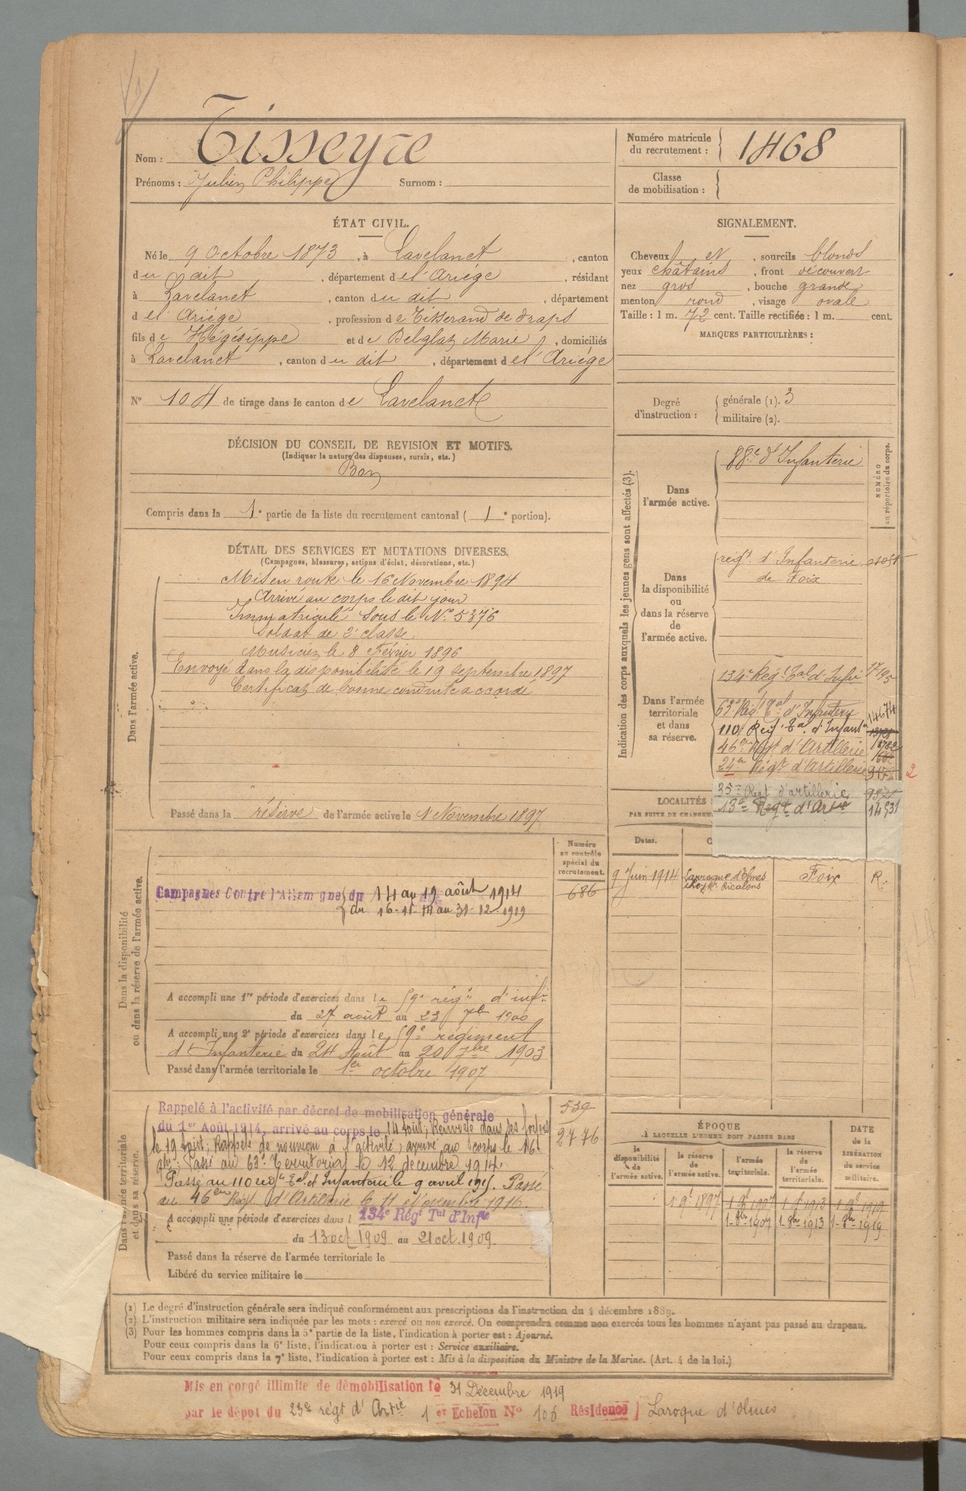 Nom : Tisseyre
Prénoms : Julien Philippe Surnom :
Numéro matricule du recrutement : 1468
Classe de mobilisation :
ÉTAT CIVIL.
Né le 9 Octobre 1873, à Lavelanet, canton
du dit, département de l'Ariège, résidant
à Lavelanet, canton du dit, département
de l'Ariège, profession de Tisserand de draps
fils de Hégésippe et de Delglat Marie, domiciliés
à Lavelanet, canton du dit, département de l'Ariège
N° 104 de tirage dans le canton de Lavelanet
SIGNALEMENT.
Cheveux et, sourcils blonds
yeux châtains, front découvert
nez gros, bouche grande
menton rond, visage ovale
Taille : 1 m. 72 cent. Taille rectifiée : 1 m. cent.
MARQUES PARTICULIÈRES :
Degré d'instruction : générale (1). 3
militaire (2).
DÉCISION DU CONSEIL DE REVISION ET MOTIFS.
(Indiquer la nature des dispenses, sursis, etc.)
Bon
Compris dans la 1e partie de la liste du recrutement cantonal (1e portion).
DÉTAIL DES SERVICES ET MUTATIONS DIVERSES.
(Campagnes, blessures, actions d'éclat, décorations, etc.)
Dans l'armée active.
Mis en route le 16 Novembre 1894
Arrivé au corps le dit jour
Immatriculé sous le N° 5376
Soldat de 2e classe
Musicien le 8 Février 1896
Envoyé dans la disponibilité le 19 septembre 1897
Certificat de bonne conduite accordé
Passé dans la réserve de l'armée active le 1 Novembre 1897
Indication des corps auxquels les jeunes gens sont affectés (3).
NUMÉRO au répertoire du corps.
Dans l'armée active.
88e d'Infanterie
Dans la disponibilité ou dans la réserve de l'armée active.
régt d'Infanterie
de Foix
Dans l'armée territoriale et dans sa réserve.
134e Rég. Tal d'Infie
63e Régt Tal d'Infanterie
110 Régt Tal d'Infant
46e Régt d'Artillerie
24e Régt d'Artillerie
2
35e Régt d'artillerie
13e Régt d'Artie
LOCALITÉS
PAR SUITE DE CHANGEM
Dates.
9 Juin 1914 Laroque d'Olmes Foix R.
Dans la disponibilité ou dans la réserve de l'armée active.
Numéro au contrôle spécial du recrutement.
686
Campagnes Contre l'Allemagne du 14 au 19 août 1914
du 16-11-14 au 31-12-1919
A accompli une 1re période d'exercices dans le 59e régt d'infie
du 27 août au 23 7bre 1900
A accompli une 2e période d'exercices dans le 59e régiment
d'Infanterie du 24 Août au 20 7bre 1903
Passé dans l'armée territoriale le 1er octobre 1907
Dans l'armée territoriale et dans sa réserve.
539
2776
Rappelé à l'activité par décret de mobilisation générale
du 1er Août 1914, arrivé au corps le 14 août; Renvoyé dans ses foyers
le 19 août; Rappelé de nouveau à l'activité; arrivé au corps le 16
Passé au 63e Territorial le 12 décembre 1914
Passé au 110 régt Tal d'Infanterie le 9 avril 1915. Passé
au 46ème Régt d'Artillerie le 11 novembre 1916.
A accompli une période d'exercices dans l 134e Régt Tal d'Infie
du 13 oct 1909 au 21 oct 1909
Passé dans la réserve de l'armée territoriale le
Libéré du service militaire le
ÉPOQUE
A LAQUELLE L'HOMME DOIT PASSER DANS
la disponibilité de l'armée active. la réserve de l'armée active. l'armée territoriale. la réserve de l'armée territoriale.
DATE de la LIBÉRATION du service militaire.
1 9bre 1897 1 9bre 1907 1 9bre 1913 1 9bre 1919
1-8bre 1907 1-8bre 1913 1-8bre 1919
(1) Le degré d'instruction générale sera indiqué conformément aux prescriptions de l'instruction du 4 décembre 1889.
(2) L'instruction militaire sera indiquée par les mots : exercé ou non exercé. On comprendra comme non exercés tous les hommes n'ayant pas passé au drapeau.
(3) Pour les hommes compris dans la 5e partie de la liste, l'indication à porter est : Ajourné.
Pour ceux compris dans la 6e liste, l'indication à porter est : Service auxiliaire.
Pour ceux compris dans la 7e liste, l'indication à porter est : Mis à la disposition du Ministre de la Marine. (Art. 4 de la loi.)
Mis en congé illimité de démobilisation le 31 Décembre 1919
par le dépôt du 23e régt d'Artie 1er Echelon N° 106 Résidence Laroque d'Olmes